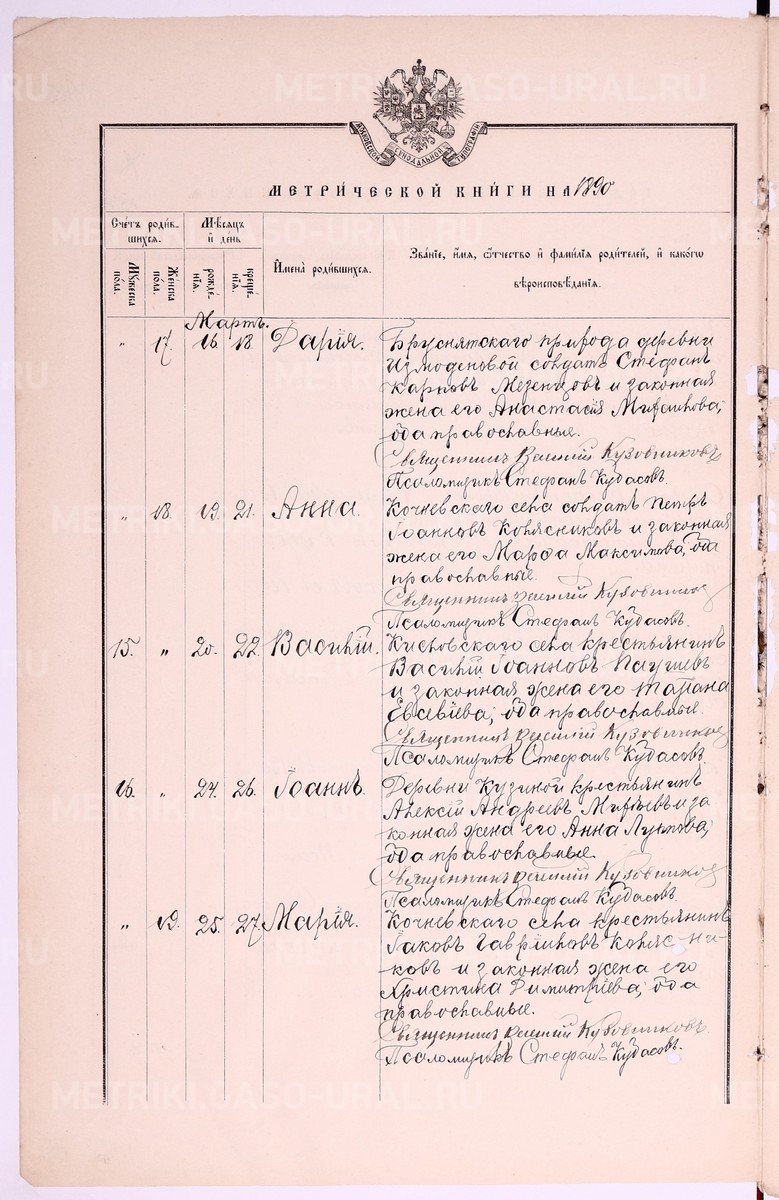 METRIKI.GASO-URAL.RU
МОСКОВСКОЙ СѴНОДАЛЬНОЙ ТИПОГРАФІИ
МЕТРИ́ЧЕСКОЙ КНИ́ГИ НА 1890
Сче́тъ роди́в-
шихся.
Мѣ́сяцъ
и҆ день
И҆мена̀ роди́вшихся.
Зва́нїе, и҆́мя, ѻ҆́тчество и҆ фами́лїѧ роди́телей, и҆ како́гѡ
вѣроисповѣ́данїя.
Мꙋжеска
по́ла.
Же́нска
по́ла.
рожде́-
нїя.
креще́-
нїя.
Мартъ.
" 17. 16. 18. Дарія. Бруснятскаго прихода деревни
Измоденовой солдатъ Стефанъ
Карповъ Мезенцовъ и законная
жена его Анастасія Михаилова;
оба православные.
Священникъ Василій Кузовниковъ
Псаломщикъ Стефанъ Кудасовъ.
" 18. 19. 21. Анна. Кочневскаго села солдатъ Петръ
Іоанновъ Колясниковъ и законная
жена его Марфа Максимова; оба
православные.
Священникъ Василій Кузовниковъ
Псаломщикъ Стефанъ Кудасовъ.
15. " 20. 22. Василій. Кисловскаго села крестьянинъ
Василій Іоанновъ
и законная жена его Татіана
Евсевіева; оба православные.
Священникъ Василій Кузовниковъ
Псаломщикъ Стефанъ Кудасовъ.
16. " 24. 26. Іоаннъ. Деревни Кузиной крестьянинъ
Алексій Андреевъ и за
конная жена его Анна
оба православные.
Священникъ Василій Кузовниковъ
Псаломщикъ Стефанъ Кудасовъ.
" 19. 25. 27. Марія. Кочневскаго села крестьянинъ
Іаковъ Гавріиловъ Коляс-ни-
ковъ и законная жена его
Христина Димитріева; оба
православные.
Священникъ Василій Кузовниковъ.
Псаломщикъ Стефанъ Кудасовъ.
METRIKI.GASO-URAL.RU